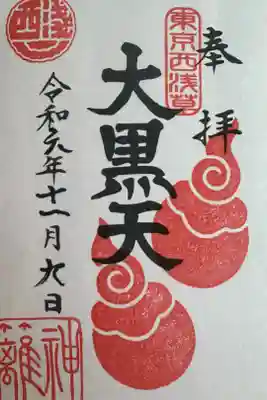 奉拝
東京西浅草
大黒天
令和元年十一月九日
神籬